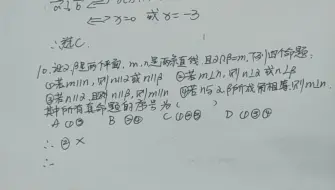 a ⊥ b
⟺ x=0 或 x=-3
∴选C.
10. 设α,β是两个平面, m,n是两条直线, 且α∩β=m, 下列四个命题:
①若m∥n, 则n∥α或n∥β ②若m⊥n, 则n⊥α或n⊥β
③若n∥α, 且n∥β, 则m∥n ④若n与α,β所成角相等, 则m⊥n.
其中所有真命题的序号为( )
A ①③ B ②④ C ①②③ D ①③④
∴ ② ×
∴